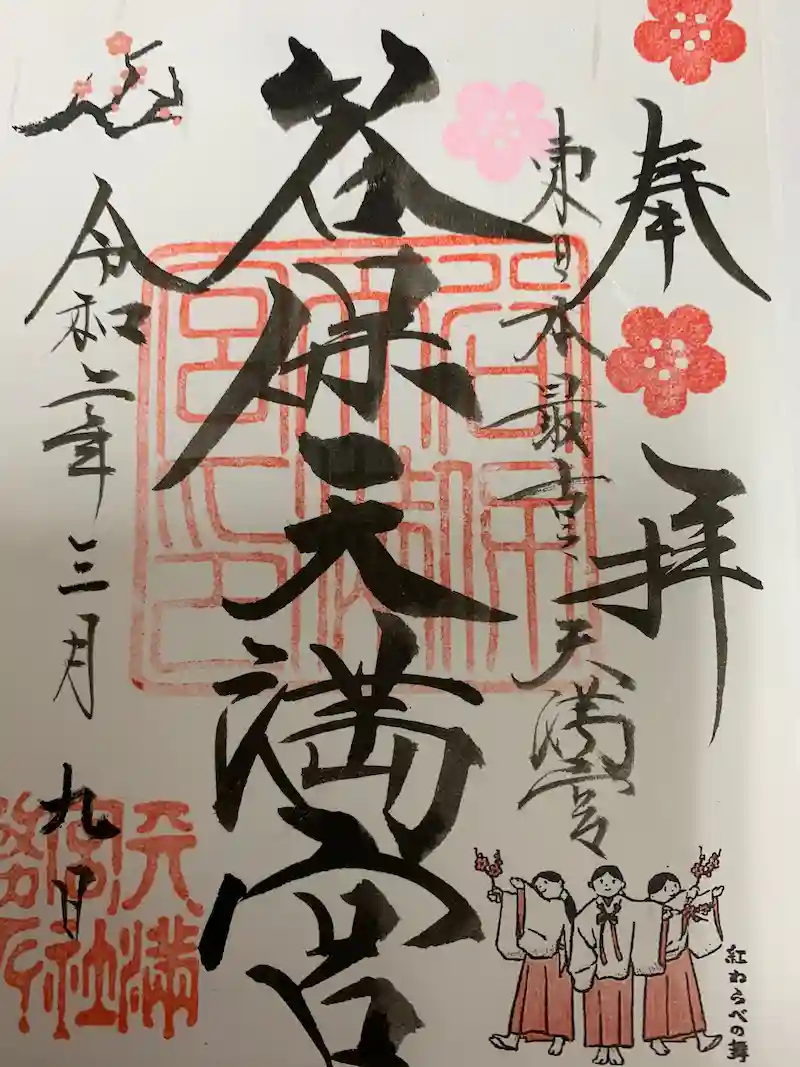 奉拝
東日本最古天満宮
谷保天満宮
令和二年三月九日
天満
宮社
務所
紅わらべの舞